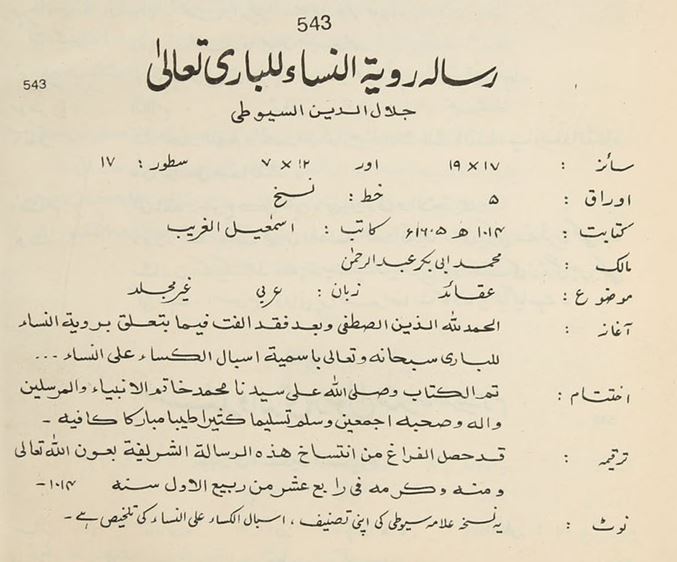 543
رسالہ رویة النساء للباری تعالیٰ
543
جلال الدین السیوطی
سائز : ۱۷ × ۱۹ اور ۱۲ × ۷ سطور : ۱۷
اوراق : ۵ خط : نسخ
کتابت : ۱۰۱۴ ھ ۱۶۰۵ء کاتب : اسمٰعیل الغریب
مالک : محمد ابی بکر عبدالرحمٰن
موضوع : عقائد زبان : عربی غیر مجلد
آغاز : الحمدلله الذین الصطفی وبعد فقد الفت فیما یتعلق برویة النساء
للباری سبحانه وتعالی باسمیة اسبال الکساء علی النساء ...
اختتام : تم الکتاب وصلی الله علی سیدنا محمد خاتم الانبیاء والمرسلین
واله وصحبه اجمعین وسلم تسلیما کثیرا طیبا مبارکا کافیه -
ترقیمہ : قد حصل الفراغ من انتساخ هذه الرسالة الشریفة بعون الله تعالی
ومنه وکرمه فی رابع عشر من ربیع الاول سنه ۱۰۱۴-
نوٹ : یہ نسخہ علامہ سیوطی کی اپنی تصنیف ، اسبال الکساء علی النساء کی تلخیص ہے -